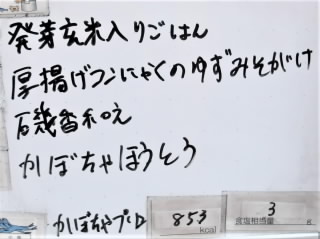 発芽玄米入りごはん
厚揚げコンにゃくのゆずみそがけ
磯香和え
かぼちゃほうとう
かぼちゃプロ 853 kcal 食塩相当量 3 g